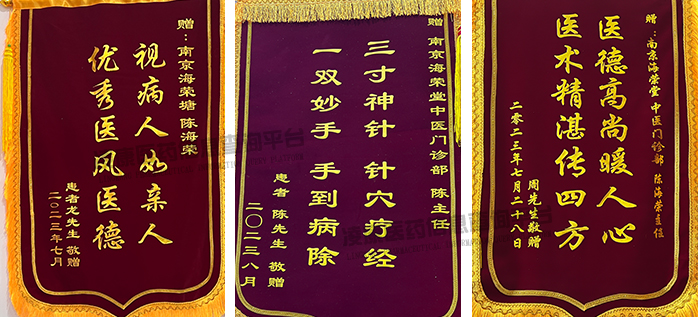 赠：南京海荣塘 陈海荣
视病人如亲人
优秀医风医德
患者龙先生 敬赠
二〇二三年七月
赠 南京海荣堂中医门诊部 陈主任
三寸神针 针穴疗经
一双妙手 手到病除
患者 陈先生 敬赠
二〇二三八月
赠：南京海荣堂 中医门诊部 陈海荣主任
医德高尚暖人心
医术精湛传四方
周先生敬赠
二零二三年七月二十八日